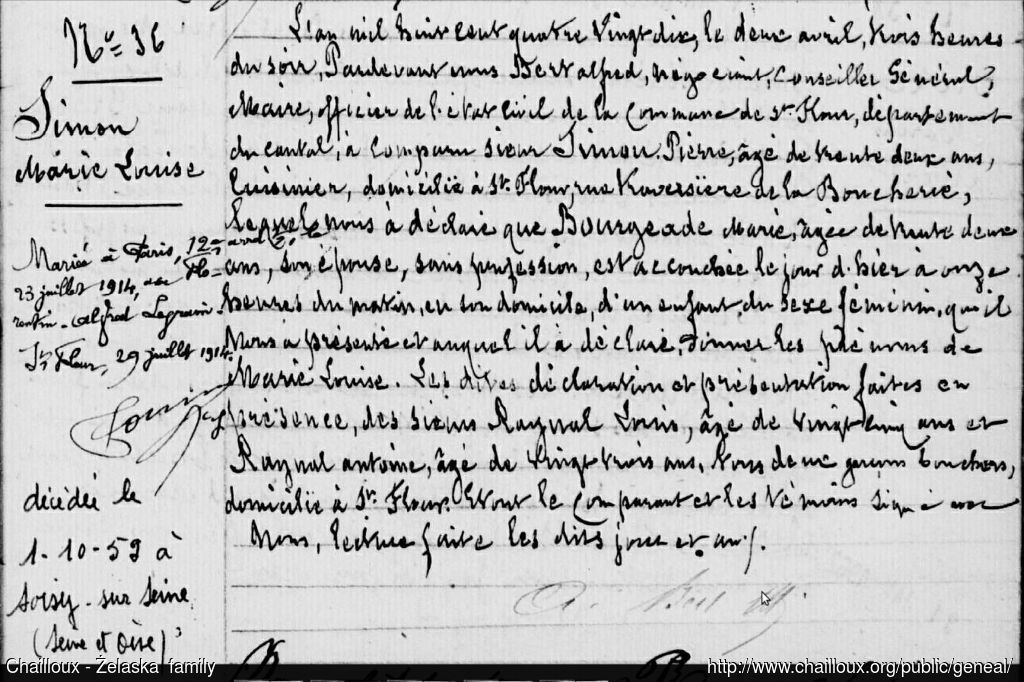 Nº 36
Simon
Marie Louise
Marié à Paris, 12e arrd
23 juillet 1914, avec
Alfred Legrain.
St Flour, 29 juillet 1914.
décédée le
1-10-59 à
Soisy-sur Seine
(Seine et Oise)
L'an mil huit cent quatre vingt dix, le deux avril, trois heures
du soir, Pardevant nous Bert alfred, négociant, Conseiller Général,
Maire, officier de l'état Civil de la Commune de St Flour, département
du cantal, à Comparu sieur Simon Pierre, âgé de trente deux ans,
Cuisinier, domicilié à St Flour, rue traversière de la Boucherie,
Lequel nous à déclaré que Bourgeade Marie, âgée de trente deux
ans, son épouse, sans profession, est accouchée le jour d'hier à onze
heures du matin, en son domicile, d'un enfant du sexe féminin, qu'il
Nous a présenté et auquel il à déclaré, donner les prénoms de
Marie Louise. Les dites déclaration et présentation faites en
présence, des sieurs Raynal Louis, âgé de vingt cinq ans et
Raynal antoine, âgé de vingt trois ans, tous deux garçons bouchers,
domicilié à St Flour. Et ont le Comparant et les témoins signé avec
Nous, lecture faite les dits jour et an /.
A. Bert
Chailloux - Želaska family
http://www.chailloux.org/public/geneal/